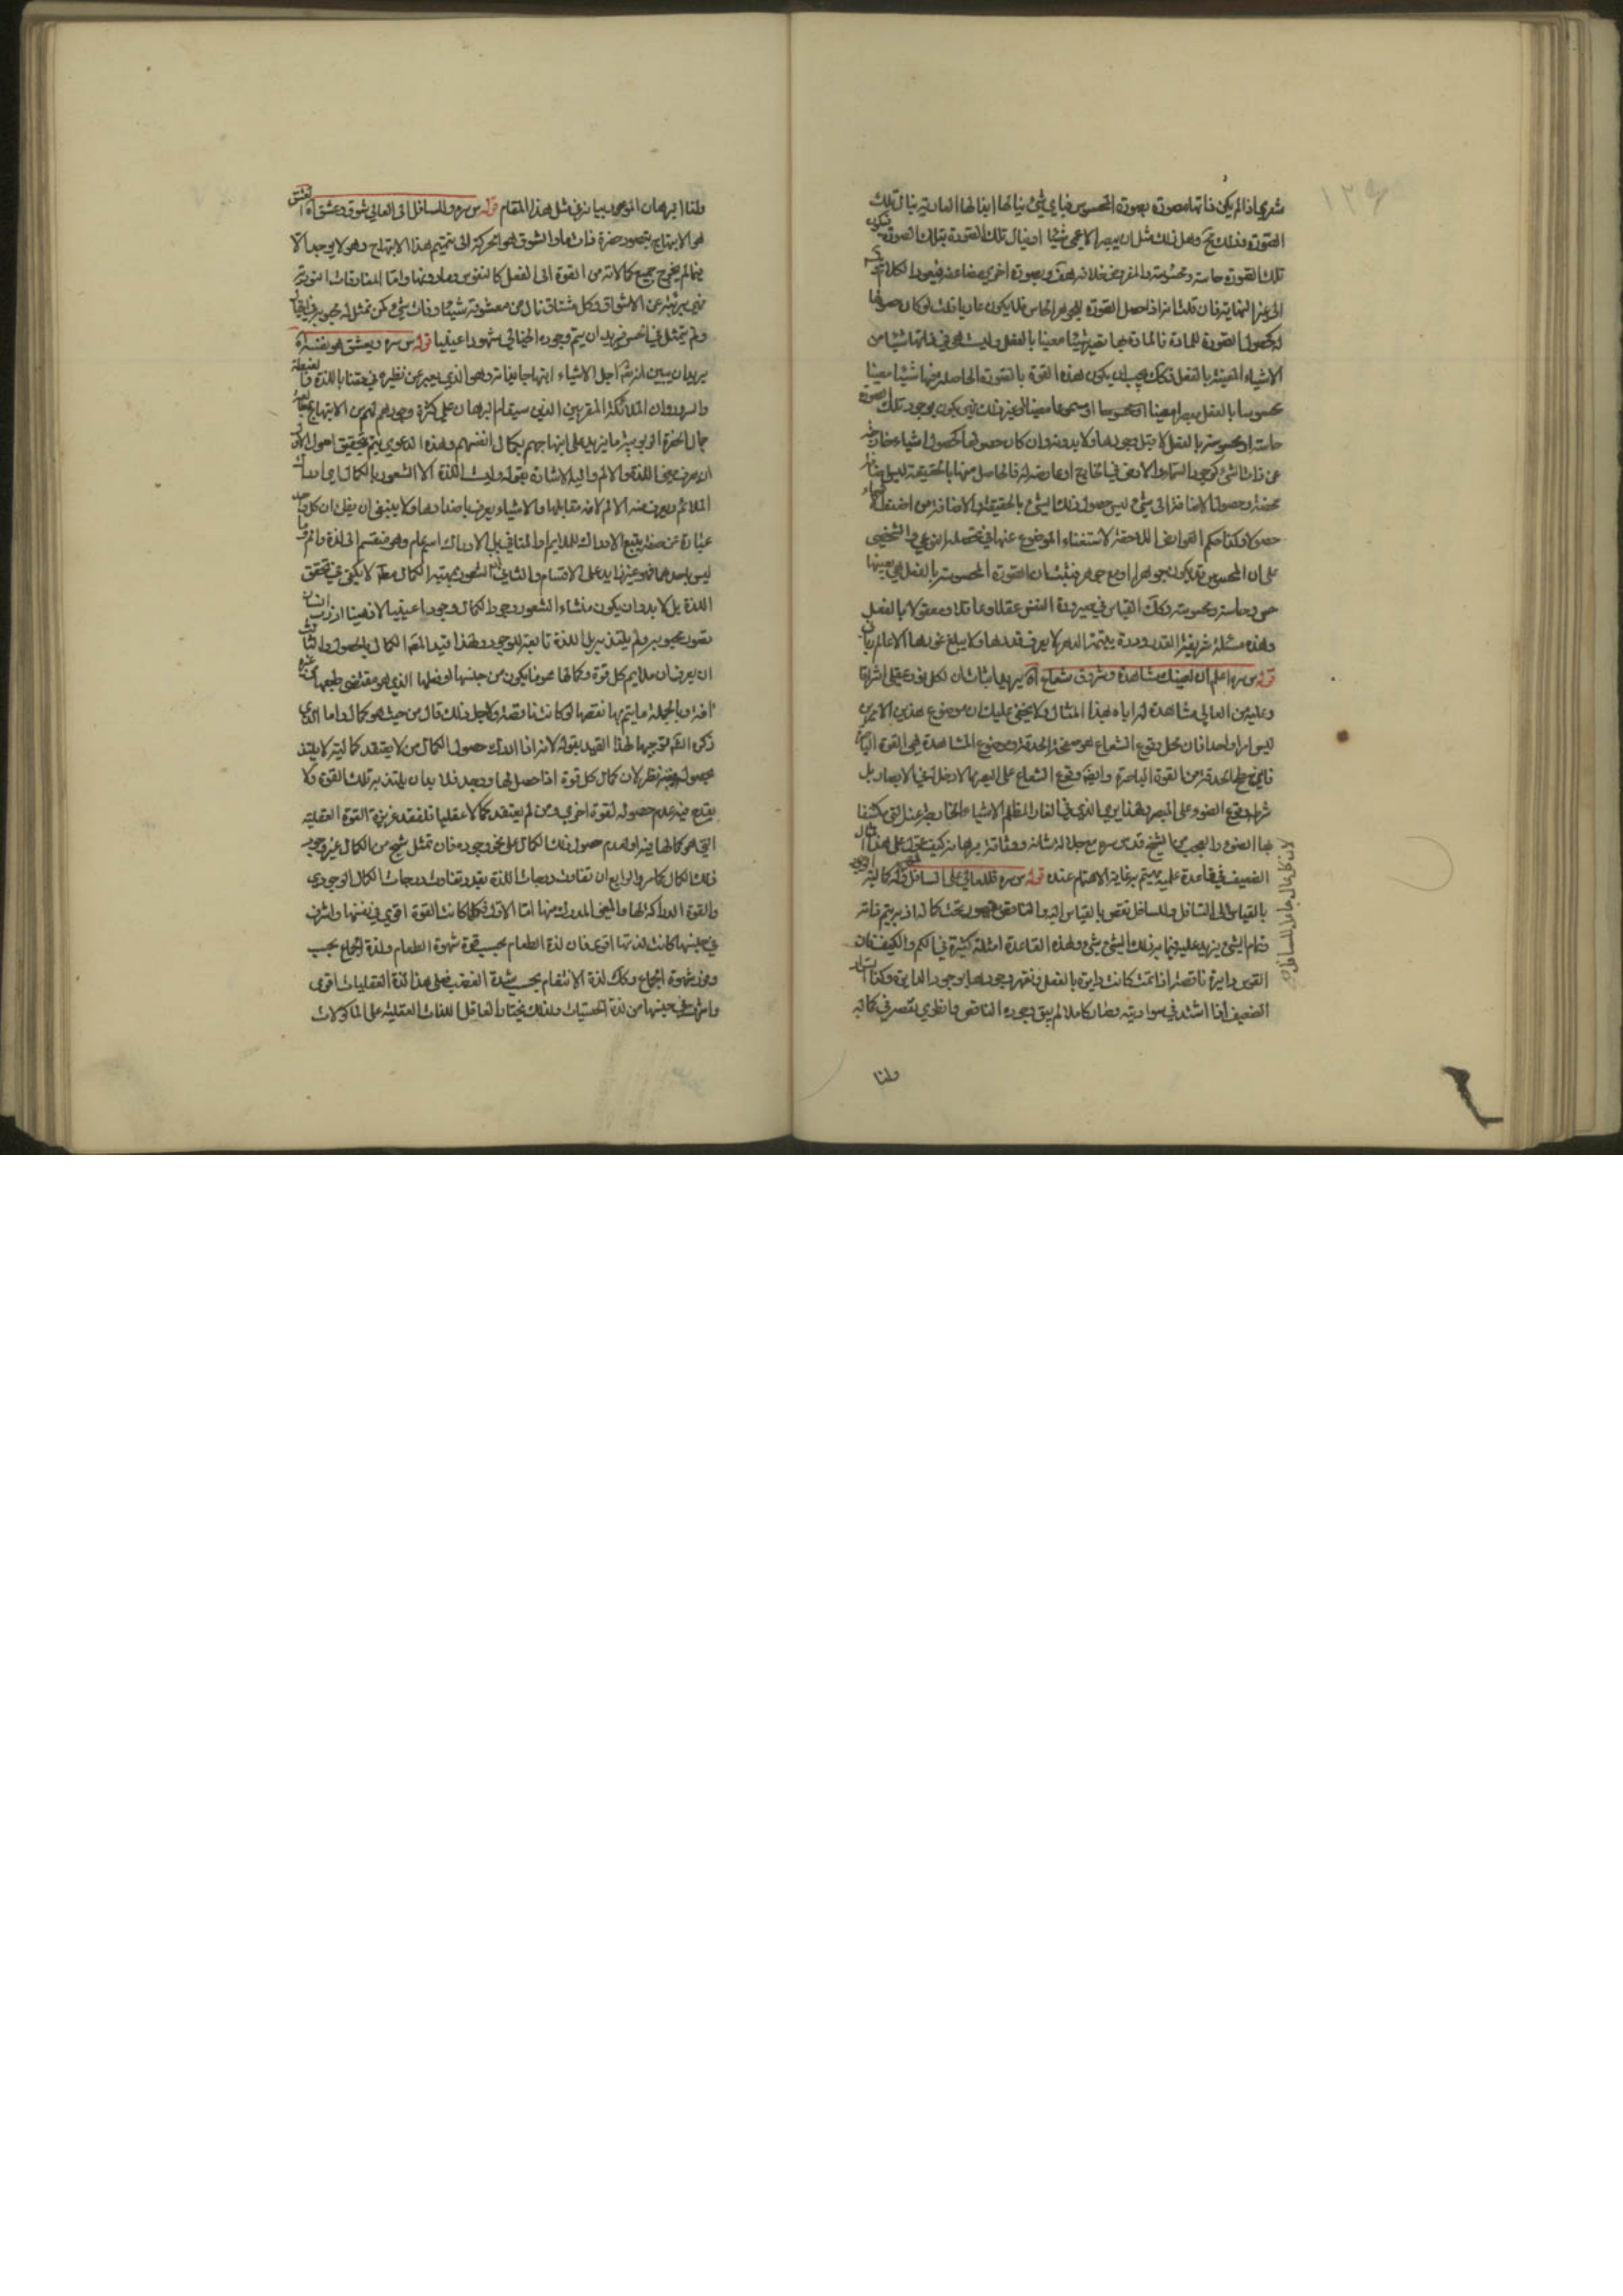 ١٢٤
شعري اذا لم يكن ذاتها مصورة بصورة المحسوس فباي شئ ينالها ابذاتها العارية ينال تلك
الصورة فذلك مح وهل ذلك مثل ان يبصر الاعمى شيئا او ينال تلك الصورة بتلك الصورة فيكون
تلك الصورة حاسة ومحسوسة والمفروض خلافه هف وبصورة اخرى مضاعفة فيعود الكلام
الى غير النهاية فان قلت انه اذا حصل الصورة للجوهر الحاس فلا يكون عاريا قلت لو كان حصولها
له كحصول الصورة للمادة فالمادة بها تصير شيئا معينا بالفعل وليست هي في ذاتها شيئا من
الاشياء المعينة بالفعل فكك يجب ان يكون لهذه القوة بالصورة الحاصلة منها شيئا معينا
محسوسا بالفعل مبصرا معينا او ملموسا او مسموعا معينا الى غير ذلك فيكون بوجود تلك الصورة
حاسة او محسوسة بالفعل لا قبل وجودها ولا بدونه وان كان حصولها كحصول اشياء خارجة
عن ذات الشئ كوجود السماء والارض في الخارج او عارضة له فالحاصل منها بالحقيقة ليس الا اضافة
محضة وحصول الاضافة الى شئ ليس حصول ذلك الشئ بالحقيقة والاضافة من اضعف الاشياء
حصولا وكذا حكم العوارض اللاحقة لاستغناء الموضوع عنها في تحصله النوعي والشخصي
على ان المحسوس قد يكون جوهرا او مع جوهر فثبت ان الصورة المحسوسة بالفعل هي بعينها
حس وحاسة ومحسوسة وكك القياس في صيرورة النفس عقلا وعاقلا ومعقولا بالفعل
وهذه مسئلة شريفة القدر ودرة يتيمة الدهر لا يعرف قدرها ولا يبلغ غورها الا عالم رباني
قوله س سره اعلم ان لعينك مشاهدة وشروق شعاع اه يريد اثبات ان لكل نور عقلي اشراقا
وعليه من العالي مشاهدة له اياه بهذا المثال ولا يخفى عليك ان موضوع هذين الامرين
ليس امرا واحدا فان محل وقوع الشعاع هو سطح الحدقة وموضوع المشاهدة هي القوة الباصرة
فاين سطح الحدقة من القوة الباصرة وايضا وقوع الشعاع على البصر لا دخل له في الابصار بل
شرط وقوع الضوء على المبصر ولهذا يرى الذي في الغار المظلم الاشياء الخارجة عنه التي يكتنفها
بها الضوء والعجب من الشيخ قدس سره مع جلالة شانه ومتانة برهانه كيف يعول على هذا المثال
الضعيف في قاعدة علمية يهتم بها غاية الاهتمام عنده قوله س سره فللعالي على السافل قوله كمالية
بالقياس الى السافل وللسافل نقص بالقياس اليه والناقص مقهور تحت كماله اذ به يتم ذاته
وتمام الشئ يزيد عليه وانما به ذلك الشئ شئ ولهذه القاعدة امثلة كثيرة في الكم والكيف فان
القوس دايرة ناقصة اذا تمت كانت دايرة بالفعل وتقهر وجودها بوجود الدايرة وكذا السواد
الضعيف اذا اشتد في سواديته وصار كاملا لم يبق وجوده الناقص وانطوى نقصه في كماله
ولنا
لان كل عال جاعل للسافل
ولنا البرهان النوري بيانه في مثل هذا المقام قوله س سره وللسافل الى العالي شوق وعشق اه العشق
هو الابتهاج بتصور حضرة ذات ما والشوق هو الحركة الى تتميم هذا الابتهاج وهو لا يوجد الا
فيما لم يخرج جميع كمالاته من القوة الى الفعل كالنفوس وما دونها واما المفارقات النورية
فهي بريئة عن الاشواق وكل مشتاق نال من معشوقه شيئا وفات شئ كمن تمثل له محبوبه في الخيال
ولم يتمثل في الحس فيريد ان يتم وجوده الخيالي شهودا عينيا قوله س سره ويعشق هو نفسه اه
يريد ان يبين انه تع اجل الاشياء ابتهاجا بذاته وهو الذي يعبر عن نظيره في حقنا باللذة والغبطة
والسرور وان الملائكة المقربين الذين سيقام البرهان على كثرة وجودهم لهم من الابتهاج بمطالعة
جمال الحضرة الربوبية ما يزيد على ابتهاجهم بكمال انفسهم وهذه الدعوى يتم بتحقيق اصول الاول
ان يعرف معنى اللذة والالم واليه الاشارة بقوله وليست اللذة الا الشعور بالكمال اي ادراك
الملائم ويعرف منه الالم لانه مقابلها والاشياء يعرف باضدادها ولا ينبغي ان يظن ان كل واحد
عبارة عن صفة يتبع الادراك للملايم والمنافي بل الادراك اسم عام وهو منقسم الى لذة والم وما
ليس باحدهما فهو غير زايد على الاقسام والثاني ان الشعور بمهية الكمال معه لا يكفي في تحقق
اللذة بل لا بد وان يكون منشاء الشعور وجود الكمال وجودا عينيا لا ذهنيا اذ رب انسان
تصور محبوبه ولم يلتذ به بل اللذة تابعة للوجود ولهذا قيد المص الكمال بالحصول والثالث
ان يعرف ان ملايم كل قوة وكمالها هو ما يكون من جنسها او فعلها الذي هو مقتضى طبعها من غير
افة وبالجملة ما يتم بها نقصها لو كانت ناقصة ولاجل ذلك قال من حيث هو كمال واما الذي
ذكره الش توجيها لهذا القيد بقوله لانه اذا ادرك حصول الكمال من لا يعتقد كماليته لا يلتذ
بحصوله ففيه نظر لان كمال كل قوة اذا حصل لها ووجد فلا بد ان يلتذ به تلك القوة ولا
يقدح فيه عدم حصوله لقوة اخرى ومن لم يعتقد كمالا عقليا فلفقد غريزة القوة العقلية
التي هو كمالها فيه او لعدم حصول ذلك الكمال على نحو وجوده فان تمثل شبح من الكمال غير وجود
ذلك الكمال كما مر والرابع ان تفاوت درجات اللذة بقدر تفاوت درجات الكمال الوجودي
والقوة الدراكة لها والمعنى المدرك منها اما الاول فكلما كانت القوة اقوى في نفسها واشرف
في جنسها كانت لذتها اقوى فان لذة الطعام بحسب قوة شهوة الطعام ولذة الجماع بحسب
وفور شهوة الجماع وكك لذة الانتقام بحسب شدة الغضب فعلى هذا لذة العقليات اقوى
واشرف في جنسها من لذة الحسيات ولذلك يختار العاقل اللذات العقلية على الماكولات